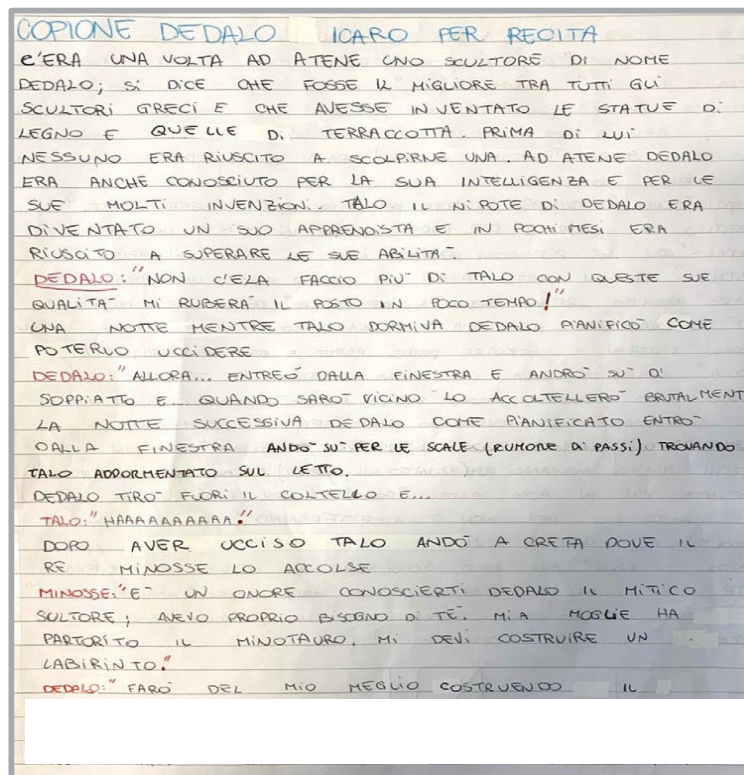 COPIONE DEDALO ICARO PER RECITA
C'ERA UNA VOLTA AD ATENE UNO SCULTORE DI NOME
DEDALO; SI DICE CHE FOSSE IL MIGLIORE TRA TUTTI GLI
SCULTORI GRECI E CHE AVESSE INVENTATO LE STATUE DI
LEGNO E QUELLE DI TERRACCOTTA. PRIMA DI LUI
NESSUNO ERA RIUSCITO A SCOLPIRNE UNA. AD ATENE DEDALO
ERA ANCHE CONOSCIUTO PER LA SUA INTELLIGENZA E PER LE
SUE MOLTI INVENZIONI. TALO IL NIPOTE DI DEDALO ERA
DIVENTATO UN SUO APPRENDISTA E IN POCHI MESI ERA
RIUSCITO A SUPERARE LE SUE ABILITÀ.
DEDALO: "NON C'ELA FACCIO PIÙ DI TALO CON QUESTE SUE
QUALITÀ MI RUBERÀ IL POSTO IN POCO TEMPO!"
UNA NOTTE MENTRE TALO DORMIVA DEDALO PIANIFICÒ COME
POTERLO UCCIDERE
DEDALO: "ALLORA... ENTRERÒ DALLA FINESTRA E ANDRÒ SÙ DI
SOPPIATTO E... QUANDO SARÒ VICINO LO ACCOLTELLERÒ BRUTALMENT
LA NOTTE SUCCESSIVA DEDALO COME PIANIFICATO ENTRÒ
DALLA FINESTRA ANDÒ SÙ PER LE SCALE (RUMORE DI PASSI) TROVANDO
TALO ADDORMENTATO SUL LETTO.
DEDALO TIRÒ FUORI IL COLTELLO E...
TALO: "HAAAAAAAAAA!"
DOPO AVER UCCISO TALO ANDÒ A CRETA DOVE IL
RE MINOSSE LO ACCOLSE
MINOSSE: "È UN ONORE CONOSCIERTI DEDALO IL MITICO
SULTORE; AVEVO PROPRIO BISOGNO DI TE. MIA MOGLIE HA
PARTORITO IL MINOTAURO. MI DEVI COSTRUIRE UN
LABIRINTO."
DEDALO: "FARÒ DEL MIO MEGLIO COSTRUENDO IL